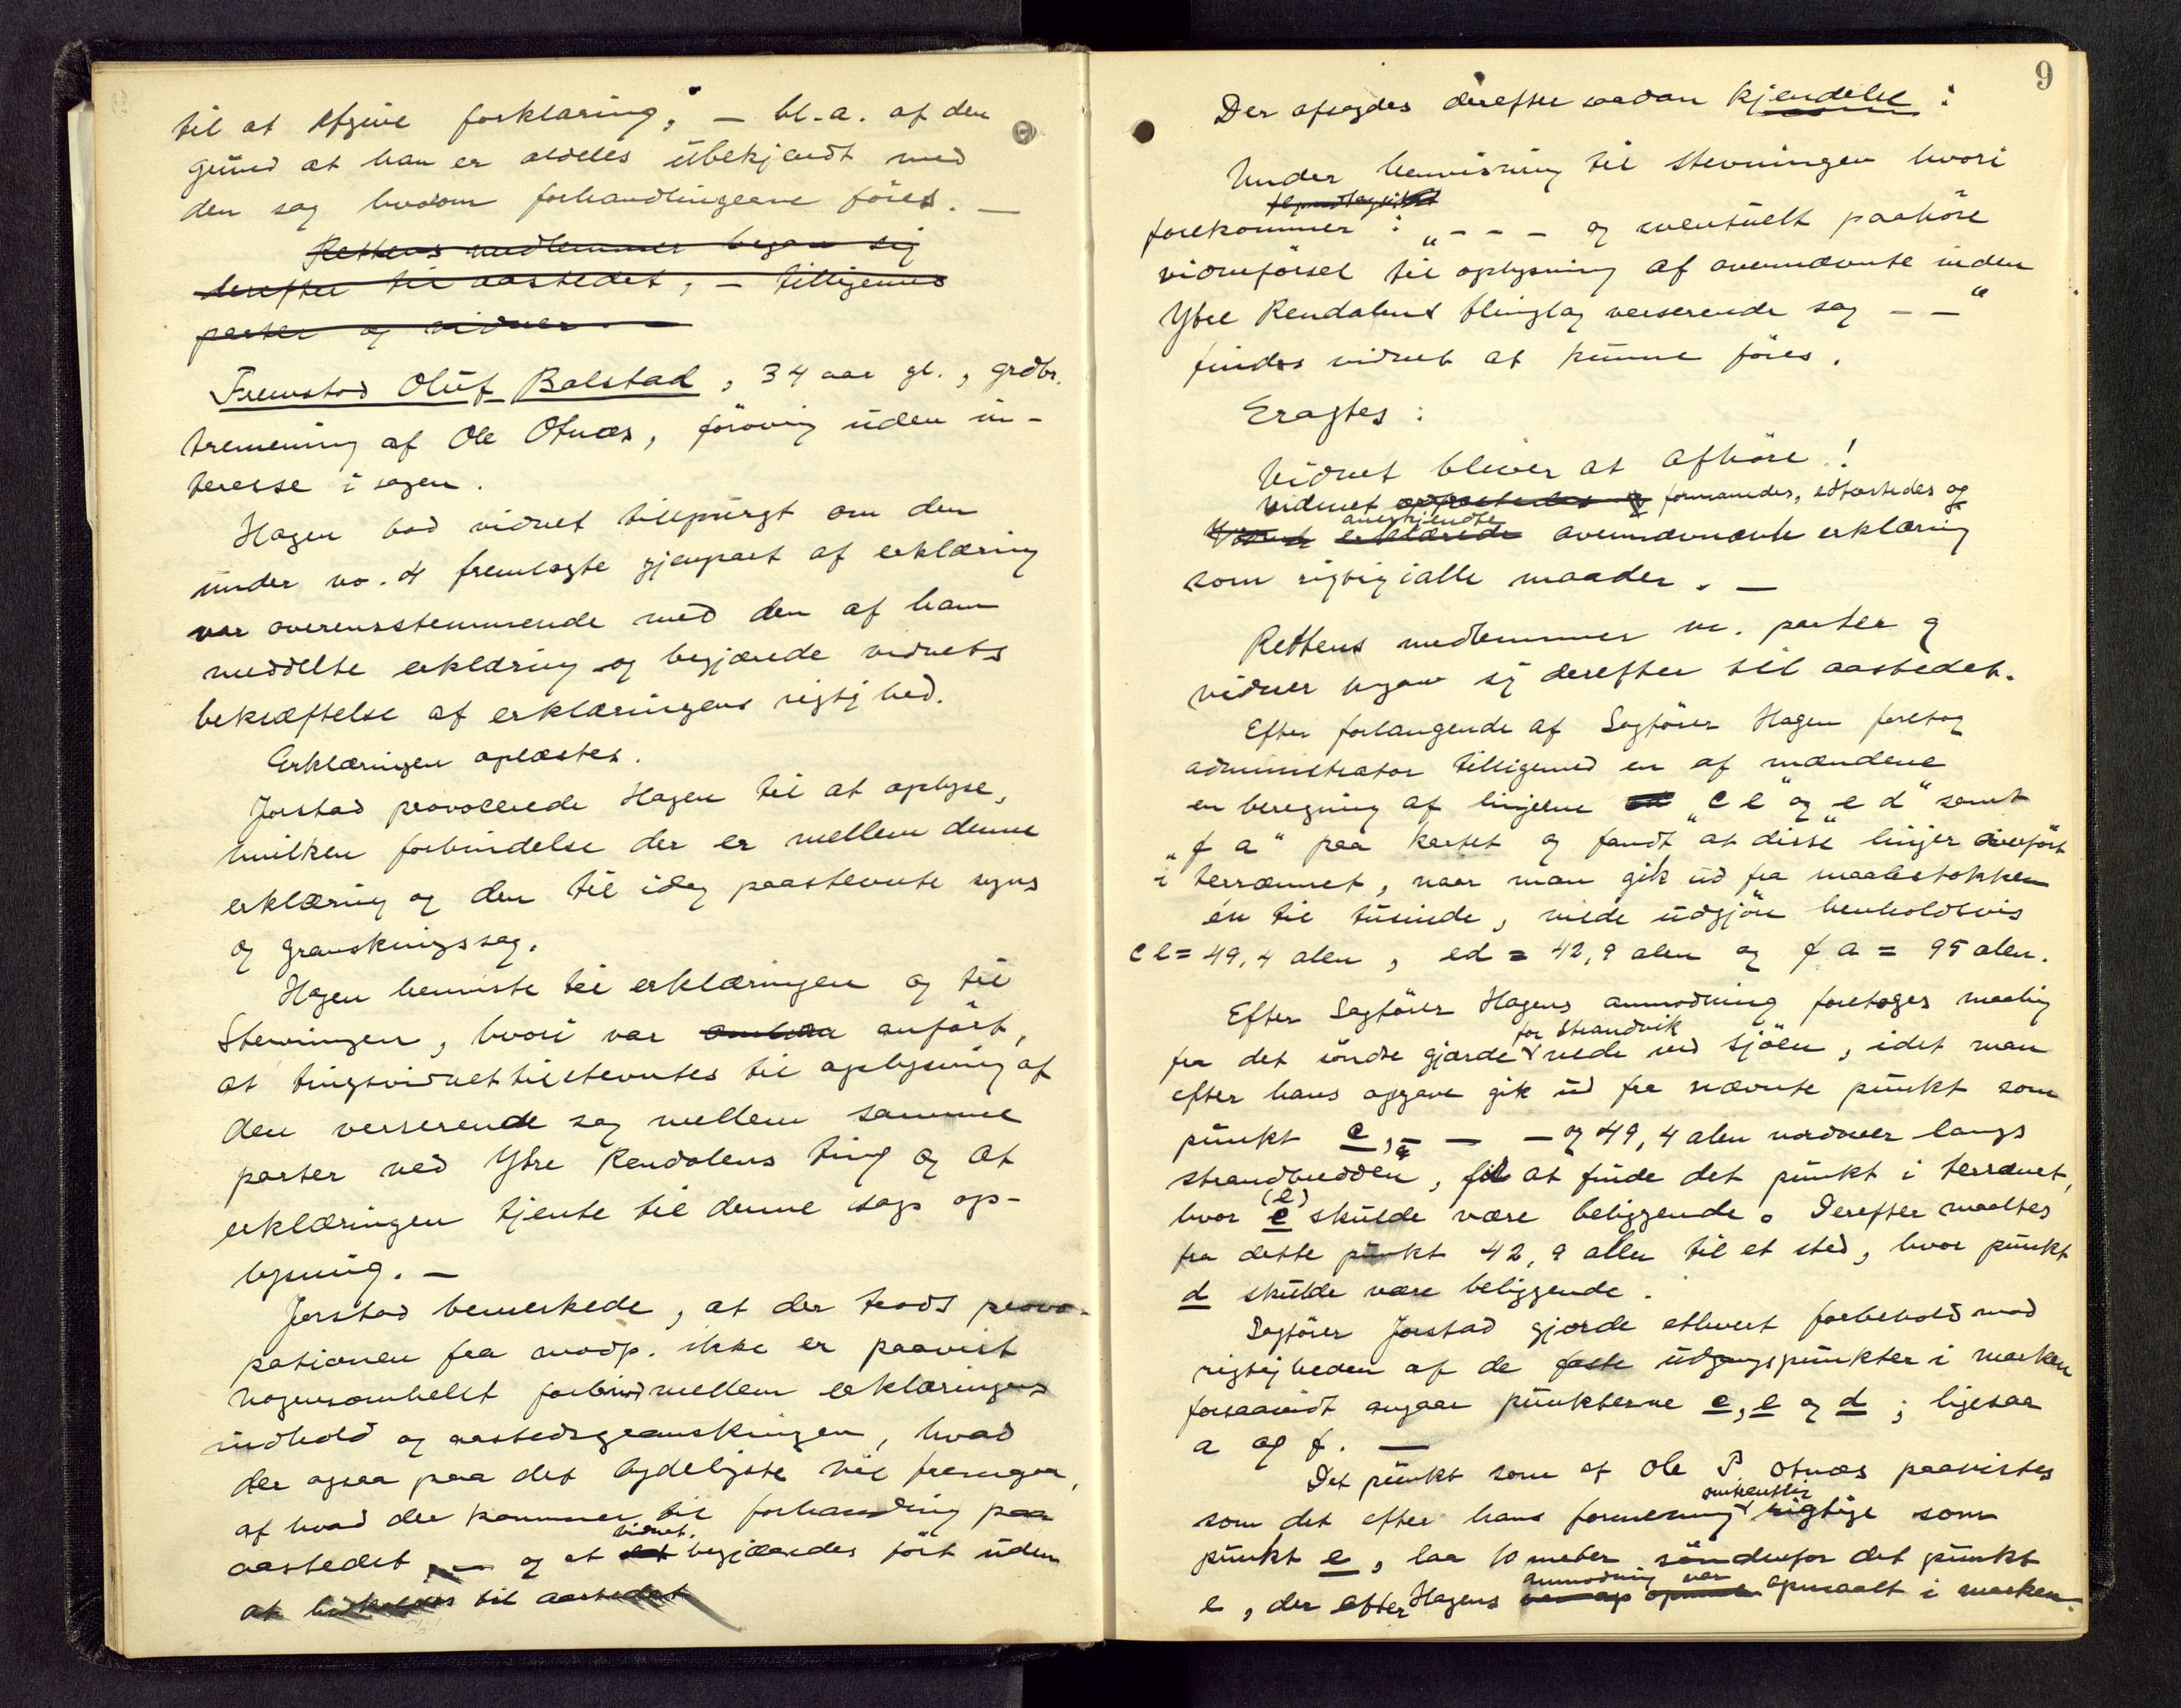 til at afgive forklaring, – bl.a. af den
grund at han er aldeles ubekjendt med
den sag hvorom forhandlingerne føres. –
Rettens medlemmer begav sig
derefter til aastedet, – tilligemed
parter og vidner. –
Fremstod Oluf Balstad, 34 aar gl., grdbr.
tremening af Ole Otnæs, forøvrig uden in-
teresse i sagen.
Hagen bad vidnet tilspurgt om den
under no. 4 fremlagte gjenpart af erklæring
var overensstemmende med den af ham
meddelte erklæring og begjærede vidnets
bekræftelse af erklæringens rigtighed.
Erklæringen oplæstes.
Jorstad provocerede Hagen til at oplyse,
hvilken forbindelse der er mellem denne
erklæring og den til idag paastevnte syns
og granskningssag.
Hagen henviste til erklæringen og til
Stevningen, hvori var anført,
at tingsvidnet tilstevntes til oplysning af
den verserende sag mellem samme
parter ved Ytre Rendalens ting og at
erklæringen tjente til denne sags op-
lysning. –
Jorstad bemerkede, at der trods provo-
kationen fra modp. ikke er paavist
nogensomhelst forbind mellem erklæringens
indhold og aastedsgranskningen, hvad
der ogsaa paa det tydeligste vil fremgaa,
af hvad der kommer til forhandling paa
vidnet
aastedet, – og at det begjæredes ført uden
at til aastedet
9
Der afsagdes derefter saadan kjendelse:
Under henvisning til stevningen hvori
forekommer: „ – – – og eventuelt paahøre
vidneførsel til oplysning af ovennævnte inden
Ytre Rendalens thinglag verserende sag – – “
findes vidnet at kunne føres.
Eragtes:
Vidnet bliver at afhøre!
Vidnet formanedes, edfæstedes og
anerkjendte
Vidnet erklærede ovennævnte erklæring
som rigtig i alle maader. –
Rettens medlemmer m. parter og
vidner begav sig derefter til aastedet.
Efter forlangende af Sagfører Hagen foretog
administrator tilligemed en af mændene
en beregning af linjerne „c e“ og „e d“ samt
„f a“ paa kartet og fandt at disse linjer overført
i terrænnet, naar man gik ud fra maalestokken
én til tusinde, vilde udgjøre henholdsvis
c e = 49,4 alen, ed = 42,9 alen og f a = 95 alen.
Efter Sagfører Hagens anmodning foretoges maaling
for Strandvik
fra det søndre gjærde nede ved sjøen, idet man
efter hans opgave gik ud fra nævnte punkt som
punkt c, – – – og 49,4 alen nordover langs
strandbredden, for at finde det punkt i terrænet,
(e)
hvor e skulde være beliggende. Derefter maaltes
fra dette punkt 42,9 allen til et sted, hvor punkt
d skulde være beliggende.
Sagfører Jorstad gjorde ethvert forbehold mod
rigtigheden af de faste udgangspunkter i marken
forsaavidt angaar punkterne c, e og d; ligesaa
a og f. –
Det punkt som af Ole P. Otnæs paavistes
omtrentlig
som det efter hans formening rigtige som
punkt e, laa 10 meter søndenfor det punkt
anmodning var
e, der efter Hagens opmaalt i marken.